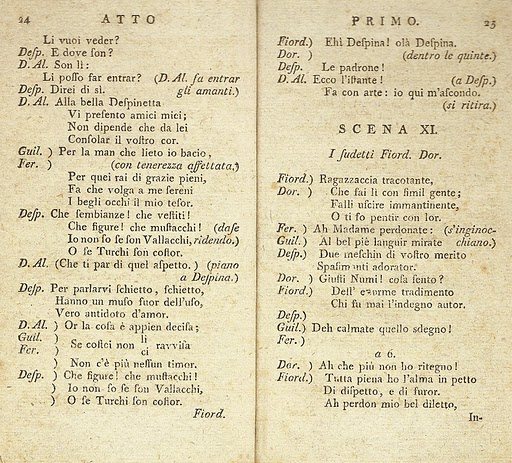 24 ATTO
Li vuoi veder?
Deſp. E dove ſon?
D. Al. Son lì:
Li poſſo far entrar? (D. Al. fa entrar
Deſp. Direi di sì. gli amanti.)
D. Al. Alla bella Deſpinetta
Vi preſento amici mici;
Non dipende che da lei
Conſolar il voſtro cor.
Guil. ) Per la man che lieto io bacio,
Fer. ) (con tenerezza affettata,)
Per quei rai di grazie pieni,
Fa che volga a me ſereni
I begli occhi il mio teſor.
Deſp. Che ſembianze! che veſtiti!
Che figure! che muſtacchi! (daſe
Io non ſo ſe ſon Vallacchi, ridendo.)
O ſe Turchi ſon coſtor.
D. Al. (Che ti par di quel aſpetto.) (piano
a Deſpina.)
Deſp. Per parlarvi ſchietto, ſchietto,
Hanno un muſo fuor dell'uſo,
Vero antidoto d'amor.
D. Al. ) Or la coſa è appien deciſa;
Guil. ) li
Fer. ) Se coſtei non ravviſa
ci
) Non c'è più neſſun timor.
Deſp. ) Che figure! che muſtacchi!
) Io non ſo ſe ſon Vallacchi,
) O ſe Turchi ſon coſtor.
Fiord.
PRIMO. 25
Fiord.) Ehi Deſpina! olà Deſpina.
Dor. ) (dentro le quinte.)
Deſp. Le padrone!
D. Al. Ecco l'iſtante! (a Deſp.)
Fa con arte: io qui m'aſcondo.
(si ritira.)
SCENA XI.
I ſudetti Fiord. Dor.
Fiord.) Ragazzaccia tracotante,
Dor. ) Che fai lì con ſimil gente;
Falli uſcire immantinente,
O ti fo pentir con lor.
Fer. ) Ah Madame perdonate: (s'inginoc-
Guil.) Al bel piè languir mirate chiano.)
Deſp.) Due meſchin di voſtro merito
Spaſimanti adorator.
Dor. ) Giuſti Numi! coſa ſento?
Fiord.) Dell' enorme tradimento
Chi fu mai l'indegno autor.
Deſp.)
Guil.) Deh calmate quello sdegno!
Fer. )
a 6.
Dor. ) Ah che più non ho ritegno!
Fiord.) Tutta piena ho l'alma in petto
Di diſpetto, e di furor.
Ah perdon mio bel diletto,
In-